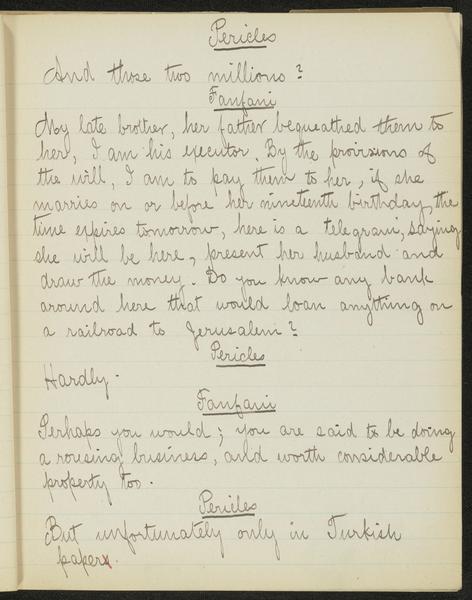 Pericles
And those two millions?
Fanfani
My late brother, her father bequeathed them to
her, I am his executor. By the provisions of
the will, I am to pay them to her, if she
marries on or before her nineteenth birthday, the
time expires tomorrow, here is a telegram, saying
she will be here, present her husband and
draw the money. Do you know any bank
around here that would loan anything on
a railroad to Jerusalem?
Pericles
Hardly.
Fanfani
Perhaps you would; you are said to be doing
a rousing business, and worth considerable
property too.
Pericles
But unfortunately only in Turkish
papers.